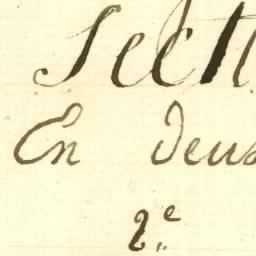 Sect
En deux
2e